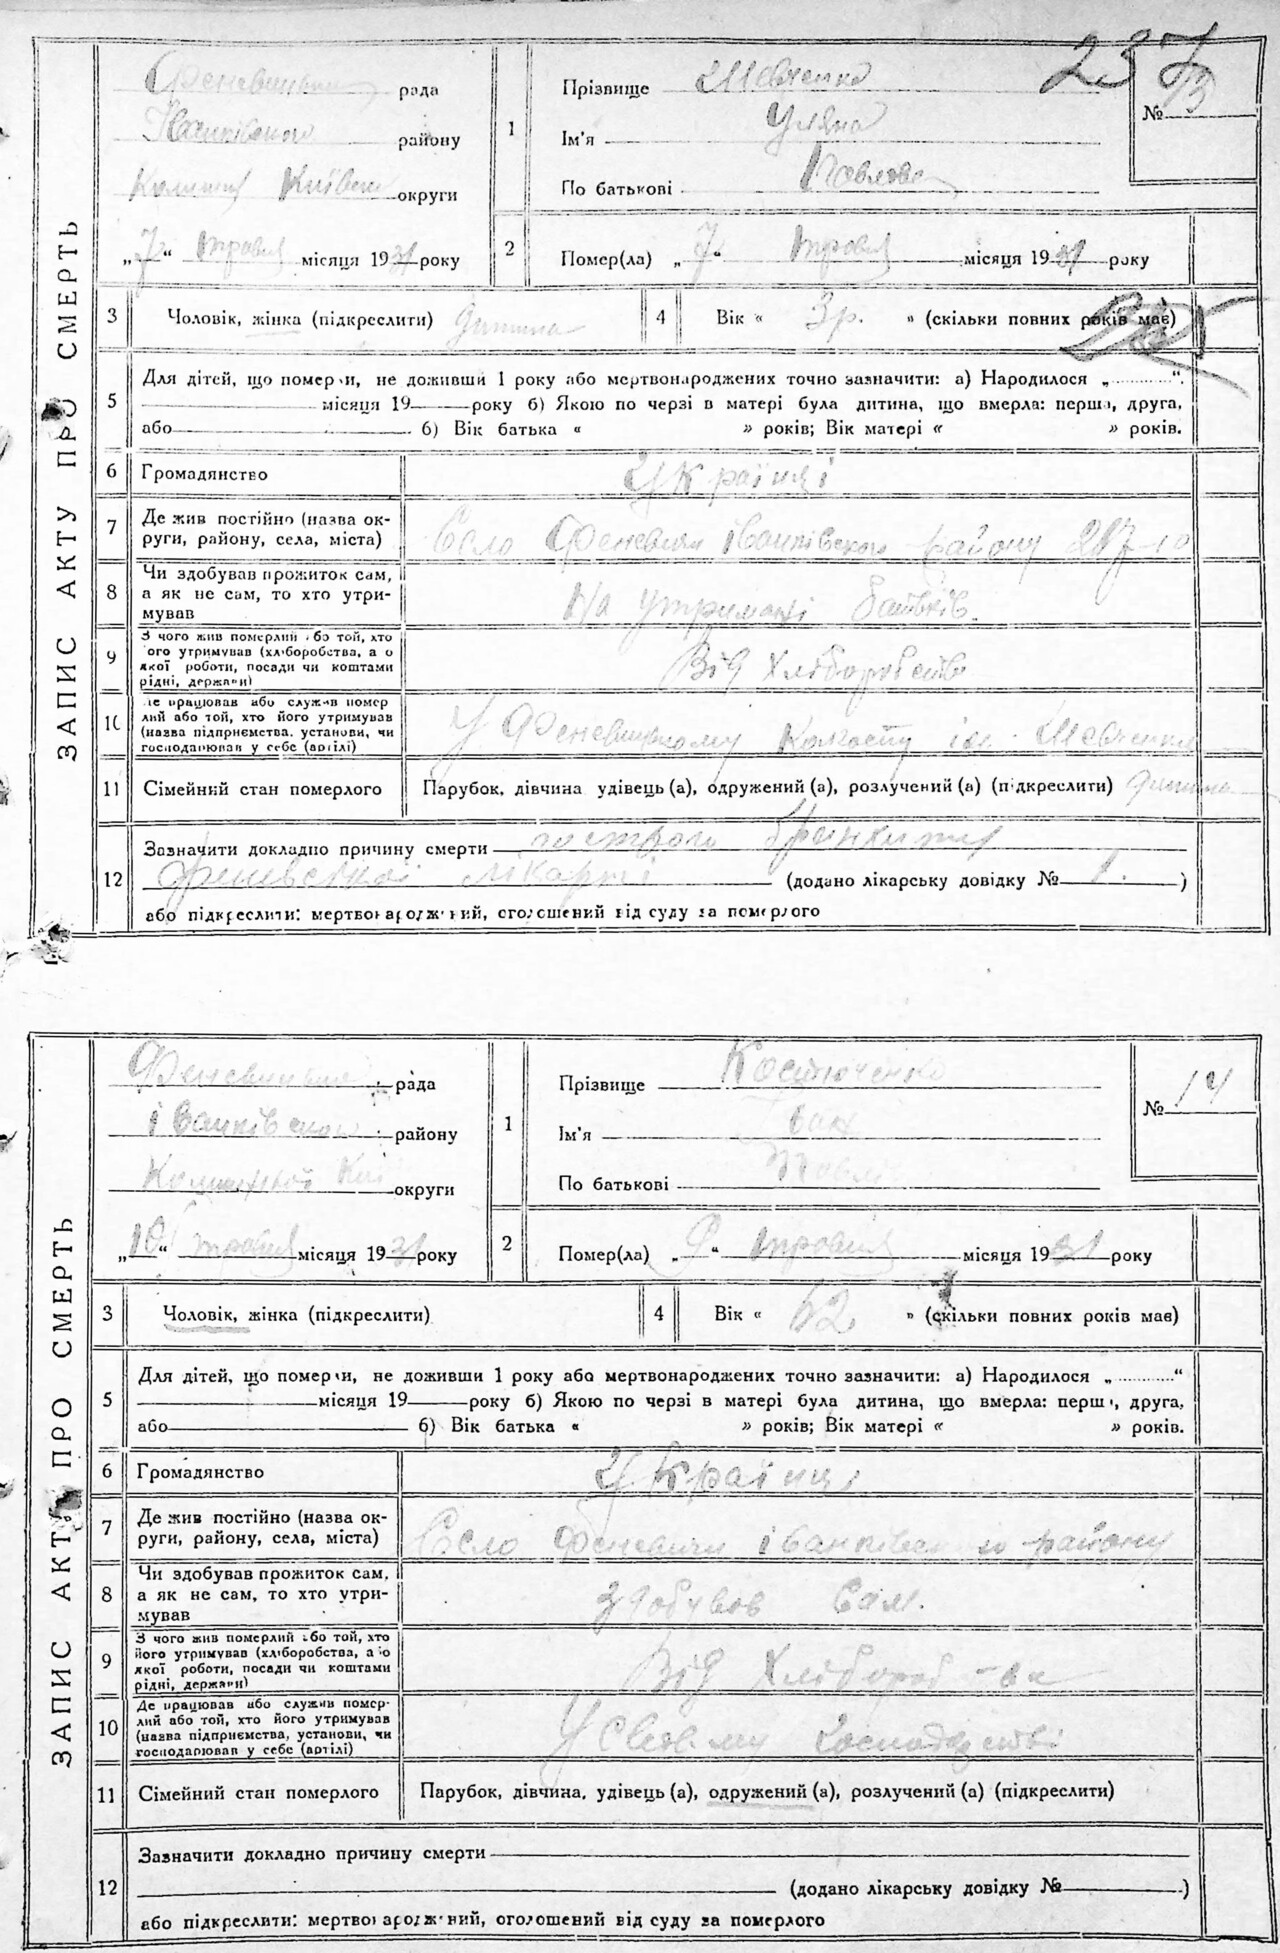 ЗАПИС АКТУ ПРО СМЕРТЬ
рада
району
округи
„7“ травня місяця 1931 року
1
Прізвище Шевченко
Ім'я Уляна
По батькові Павлова
237
№ 13
2
Помер(ла) „7“ травня місяця 1931 року
3
Чоловік, жінка (підкреслити) дитина
4
Вік « 3 р. » (скільки повних років має)
5
Для дітей, що померли, не доживши 1 року або мертвонароджених точно зазначити: а) Народилося „ “
місяця 19 року б) Якою по черзі в матері була дитина, що вмерла: перша, друга,
або б) Вік батька « » років; Вік матері « » років.
6
Громадянство
Українці
7
Де жив постійно (назва ок-
руги, району, села, міста)
Село Феневичи іванківського району
8
Чи здобував прожиток сам,
а як не сам, то хто утри-
мував
На утримані батьків
9
З чого жив померлий або той, хто
його утримував (хліборобства, або
якої роботи, посади чи коштами
рідні, держави)
Від Хліборобства
10
Де працював або служив помер
лий або той, хто його утримував
(назва підприємства, установи, чи
господарював у себе (артілі)
У Феневицькому Колгоспу ім. Шевченка
11
Сімейний стан померлого
Парубок, дівчина удівець (а), одружений (а), розлучений (а) (підкреслити) дитина
12
Зазначити докладно причину смерти гострого бронхита
лікарні (додано лікарську довідку № 1. )
або підкреслити: мертвонароджений, оголошений від суду за померлого
ЗАПИС АКТУ ПРО СМЕРТЬ
рада
іванківського району
округи
„10“ травня місяця 1931 року
1
Прізвище Костюченко
Ім'я
По батькові
№ 14
2
Помер(ла) „ “ травня місяця 1931 року
3
Чоловік, жінка (підкреслити)
4
Вік « 62 » (скільки повних років має)
5
Для дітей, що померли, не доживши 1 року або мертвонароджених точно зазначити: а) Народилося „ “
місяця 19 року б) Якою по черзі в матері була дитина, що вмерла: перша, друга,
або б) Вік батька « » років; Вік матері « » років.
6
Громадянство
Українці
7
Де жив постійно (назва ок-
руги, району, села, міста)
Село Феневичи іванківського району
8
Чи здобував прожиток сам,
а як не сам, то хто утри-
мував
Здобував Сам.
9
З чого жив померлий або той, хто
його утримував (хліборобства, або
якої роботи, посади чи коштами
рідні, держави)
Від Хліборобства
10
Де працював або служив помер-
лий або той, хто його утримував
(назва підприємства, установи, чи
господарював у себе (артілі)
У Своєму Господарстві
11
Сімейний стан померлого
Парубок, дівчина, удівець (а), одружений (а), розлучений (а) (підкреслити)
12
Зазначити докладно причину смерти
(додано лікарську довідку № )
або підкреслити: мертвонароджений, оголошений від суду за померлого